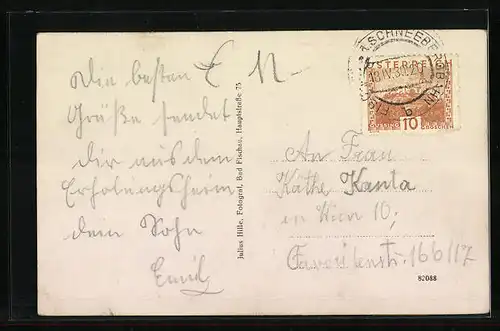 Die besten
Grüße sendet
Dir aus dem
Erholungsheim
dein Sohn
Emil
Julius Hille, Fotograf, Bad Fischau, Hauptstraße 75
SCHNEEBERGBAHN
18.IV.30
b
ÖSTERREICH
10 GROSCHEN
An Frau
Käthe Kanta
in Wien 10;
Favoritenstr. 166/17
82088